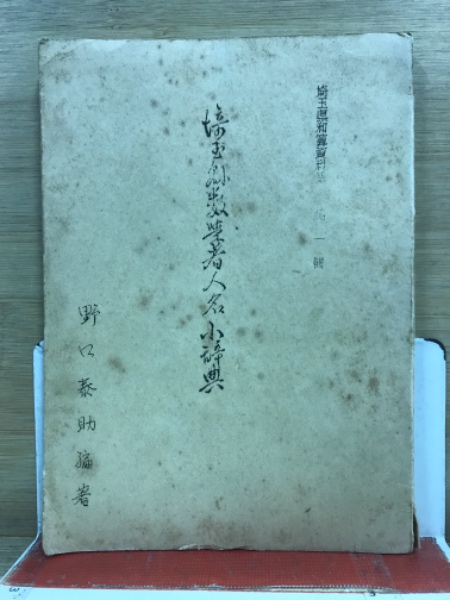 埼玉県和算資料集 第一輯
埼玉県数学者人名小辞典
野口泰助編著